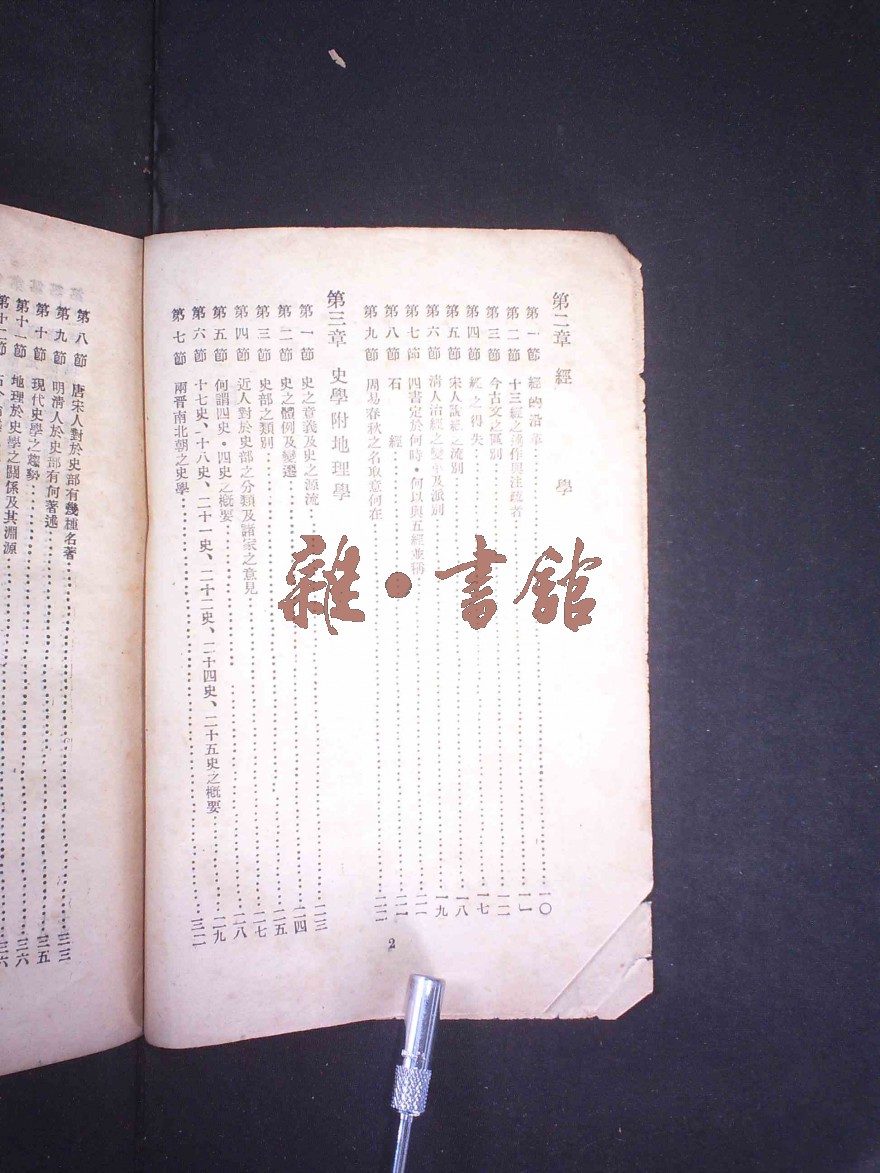 第二章 經 學
第一節 經的沿革 一〇
第二節 十三經之 作與注疏者 一一
第三節 今古文之區別 一二
第四節 經之得失 一七
第五節 宋人說經之流別 一八
第六節 清人治經之變革及派別 一九
第七節 四書定於何時・何以與五經並稱 二一
第八節 石 經 二一
第九節 周易春秋之名取意何在 二二
第三章 史學附地理學
第一節 史之意義及史之源流 二三
第二節 史之體例及變遷 二四
第三節 史部之類別 二五
第四節 近人對於史部之分類及諸家之意見 二七
第五節 何謂四史・四史之概要 二八
第六節 十七史、十八史、二十一史、二十二史、二十四史、二十五史之概要 二九
第七節 兩晉南北朝之史學 三二
2
第八節 唐宋人對於史部有幾種名著 三三
第九節 明清人於史部有何著述 三五
第十節 現代史學之趨勢 三六
第十一節 地理於史學之關係及其淵源 三六
第十二節
雜・書館